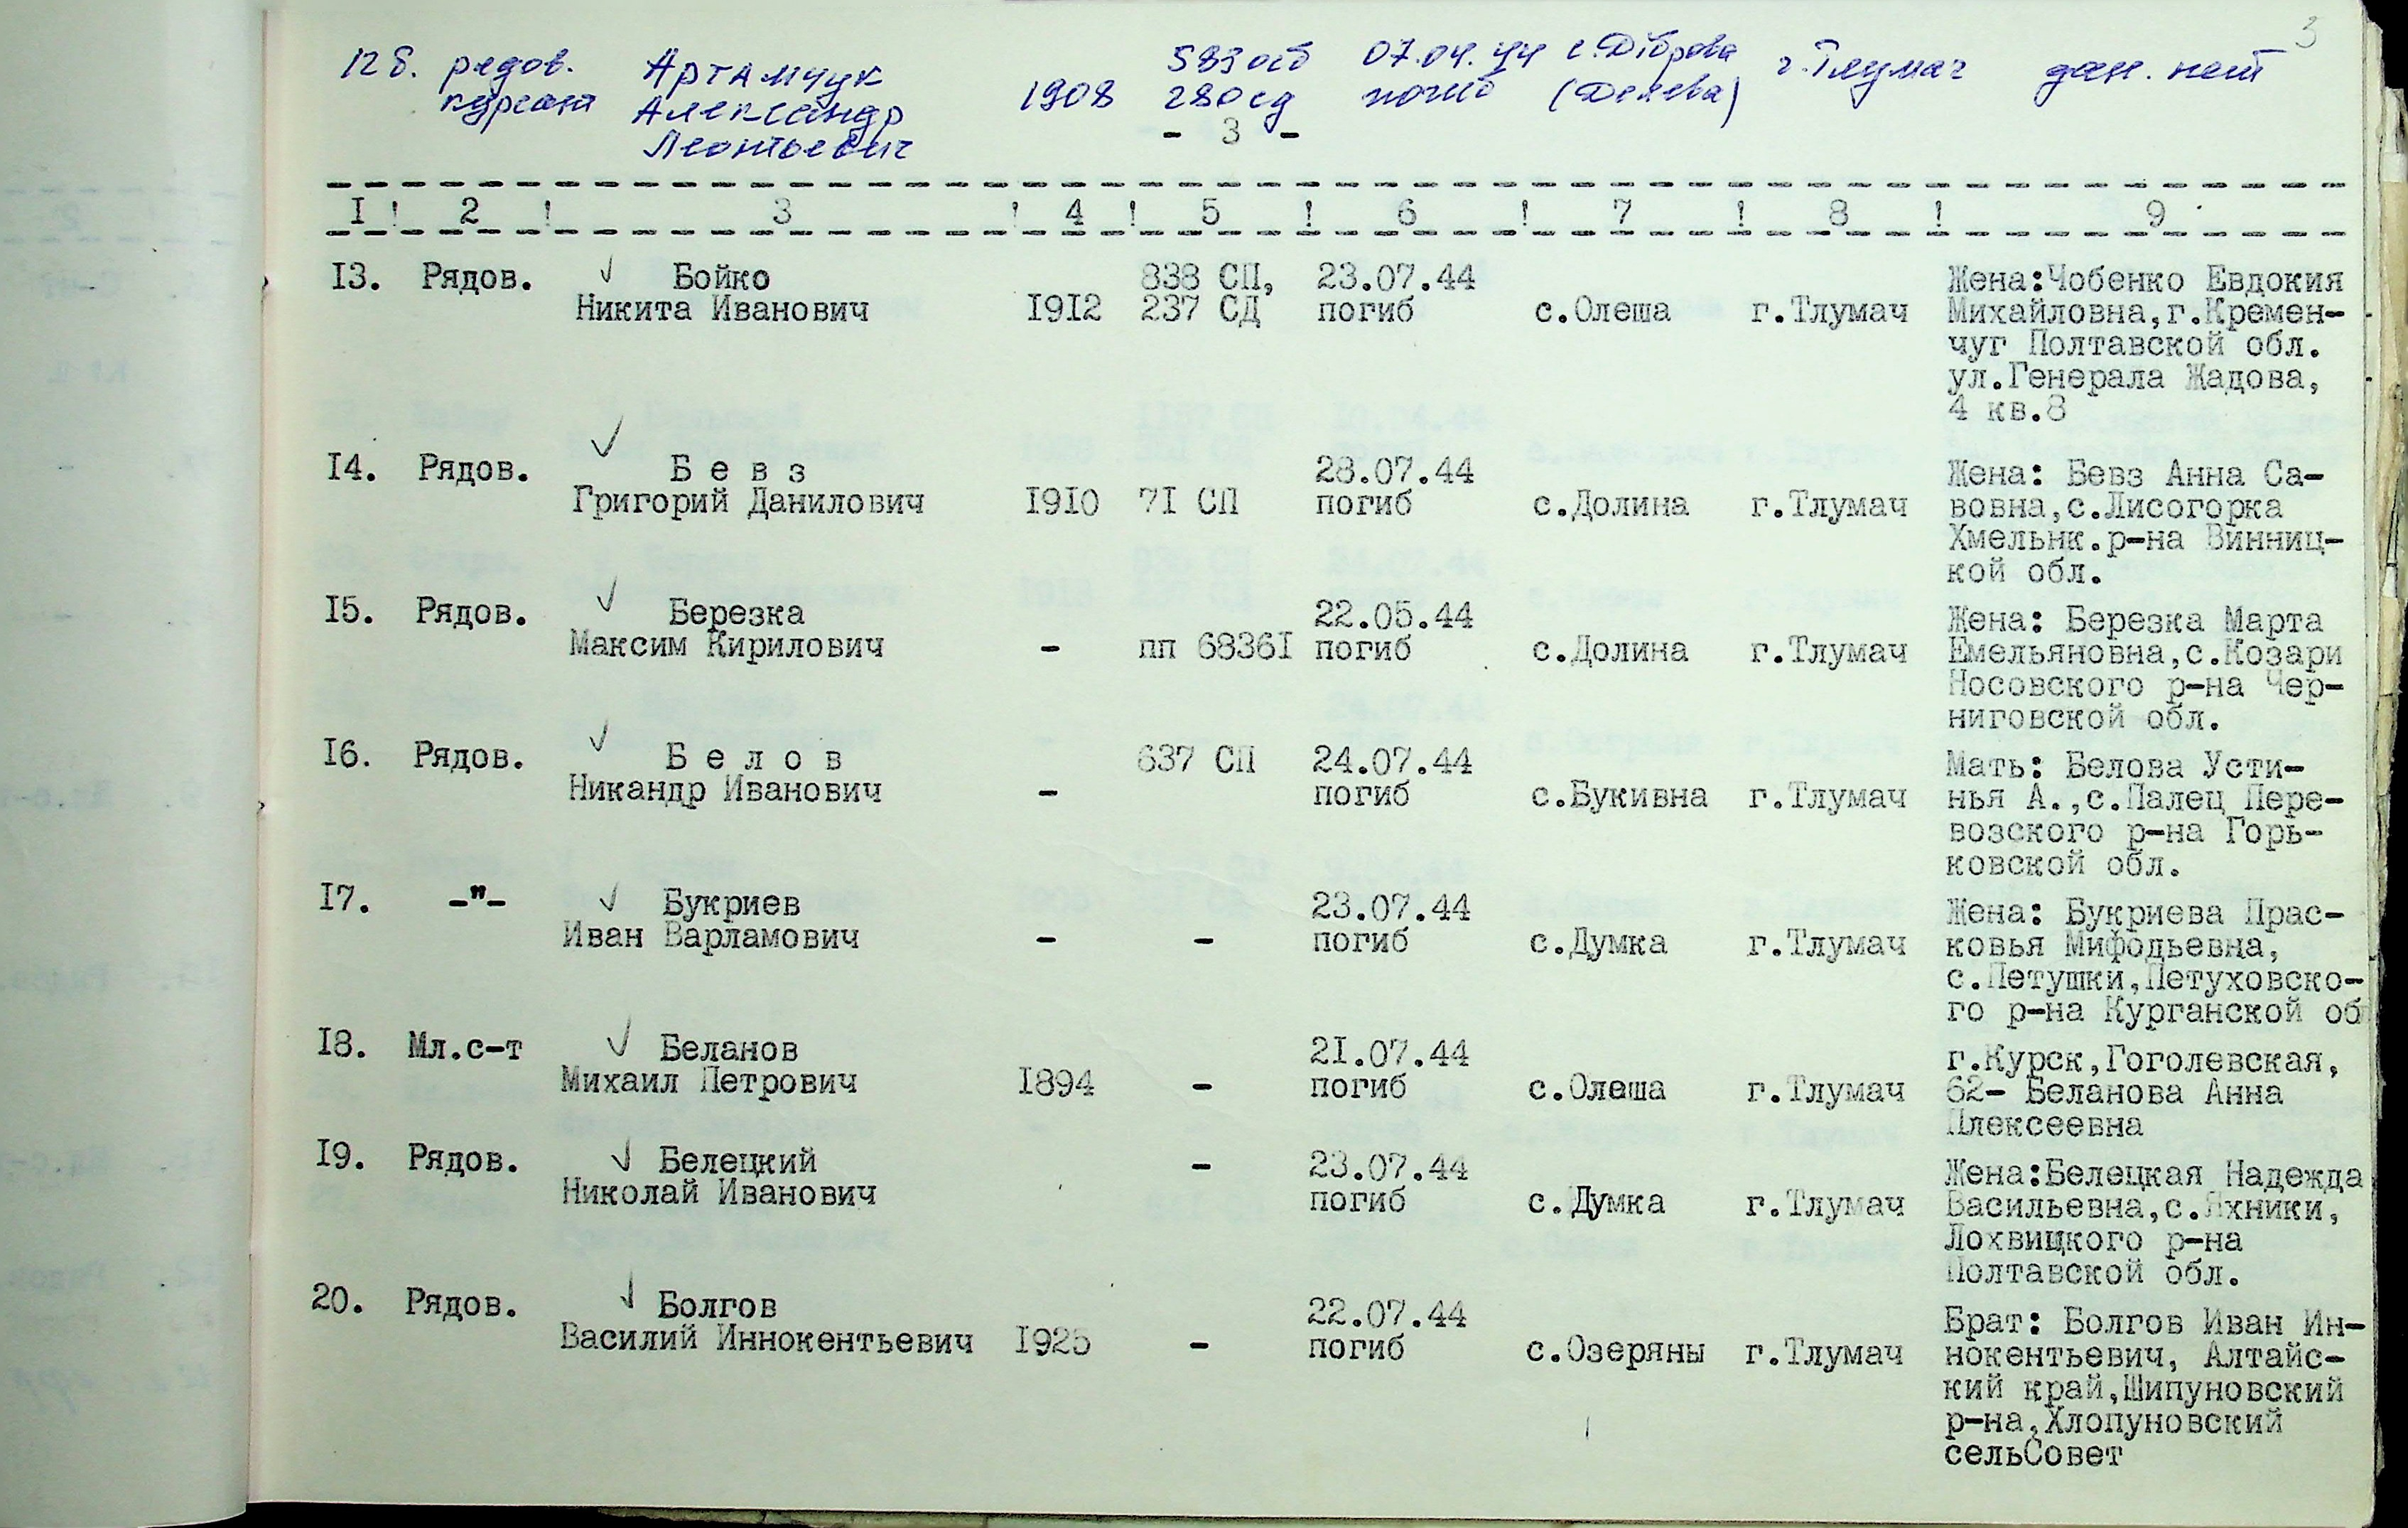 3
12б. рядов. Артамчук 583 осб 07.04.44 с.Діброва г.Тлумач дан. нет
курсант Александр 1908 280 сд погиб (Делева)
Леонтьевич
- 3 -
I ! 2 ! 3 ! 4 ! 5 ! 6 ! 7 ! 8 ! 9
I3. Рядов. Бойко 838 СП, 23.07.44 Жена:Чобенко Евдокия
Никита Иванович I9I2 237 СД погиб с.Олеша г.Тлумач Михайловна,г.Кремен-
чуг Полтавской обл.
ул.Генерала Жадова,
4 кв.8
I4. Рядов. Б е в з 28.07.44 Жена: Бевз Анна Са-
Григорий Данилович I9I0 7I СП погиб с.Долина г.Тлумач вовна,с.Лисогорка
Хмельнк.р-на Винниц-
кой обл.
I5. Рядов. Березка 22.05.44 Жена: Березка Марта
Максим Кирилович - пп 6836I погиб с.Долина г.Тлумач Емельяновна,с.Козари
Носовского р-на Чер-
ниговской обл.
I6. Рядов. Б е л о в 637 СП 24.07.44 Мать: Белова Усти-
Никандр Иванович - погиб с.Букивна г.Тлумач нья А.,с.Палец Пере-
возского р-на Горь-
ковской обл.
I7. -"- Букриев 23.07.44 Жена: Букриева Прас-
Иван Варламович - - погиб с.Думка г.Тлумач ковья Мифодьевна,
с.Петушки,Петуховско-
го р-на Курганской об
I8. Мл.с-т Беланов 21.07.44 г.Курск,Гоголевская,
Михаил Петрович I894 - погиб с.Олеша г.Тлумач 62- Беланова Анна
Алексеевна
I9. Рядов. Белецкий - 23.07.44 Жена:Белецкая Надежда
Николай Иванович погиб с.Думка г.Тлумач Васильевна,с.Яхники,
Лохвицкого р-на
Полтавской обл.
20. Рядов. Болгов 22.07.44 Брат: Болгов Иван Ин-
Василий Иннокентьевич I925 - погиб с.Озеряны г.Тлумач нокентьевич, Алтайс-
кий край,Шипуновский
р-на,Хлопуновский
сельСовет